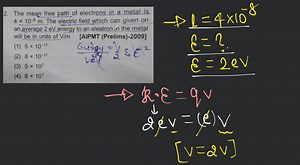 2. The mean free path of electrons in a metal is
4 × 10⁻⁸ m. The electric field which can given on
an average 2 eV energy to an electron in the metal
will be in units of V/m [AIPMT (Prelims)-2009]
(1) 5 × 10⁻¹¹
(2) 8 × 10⁻¹¹
(3) 5 × 10⁷
(4) 8 × 10⁷
l = 4×10⁻⁸
E = ?
E = 2eV
K·E = qV
2eV = (e)V
[V=2V]